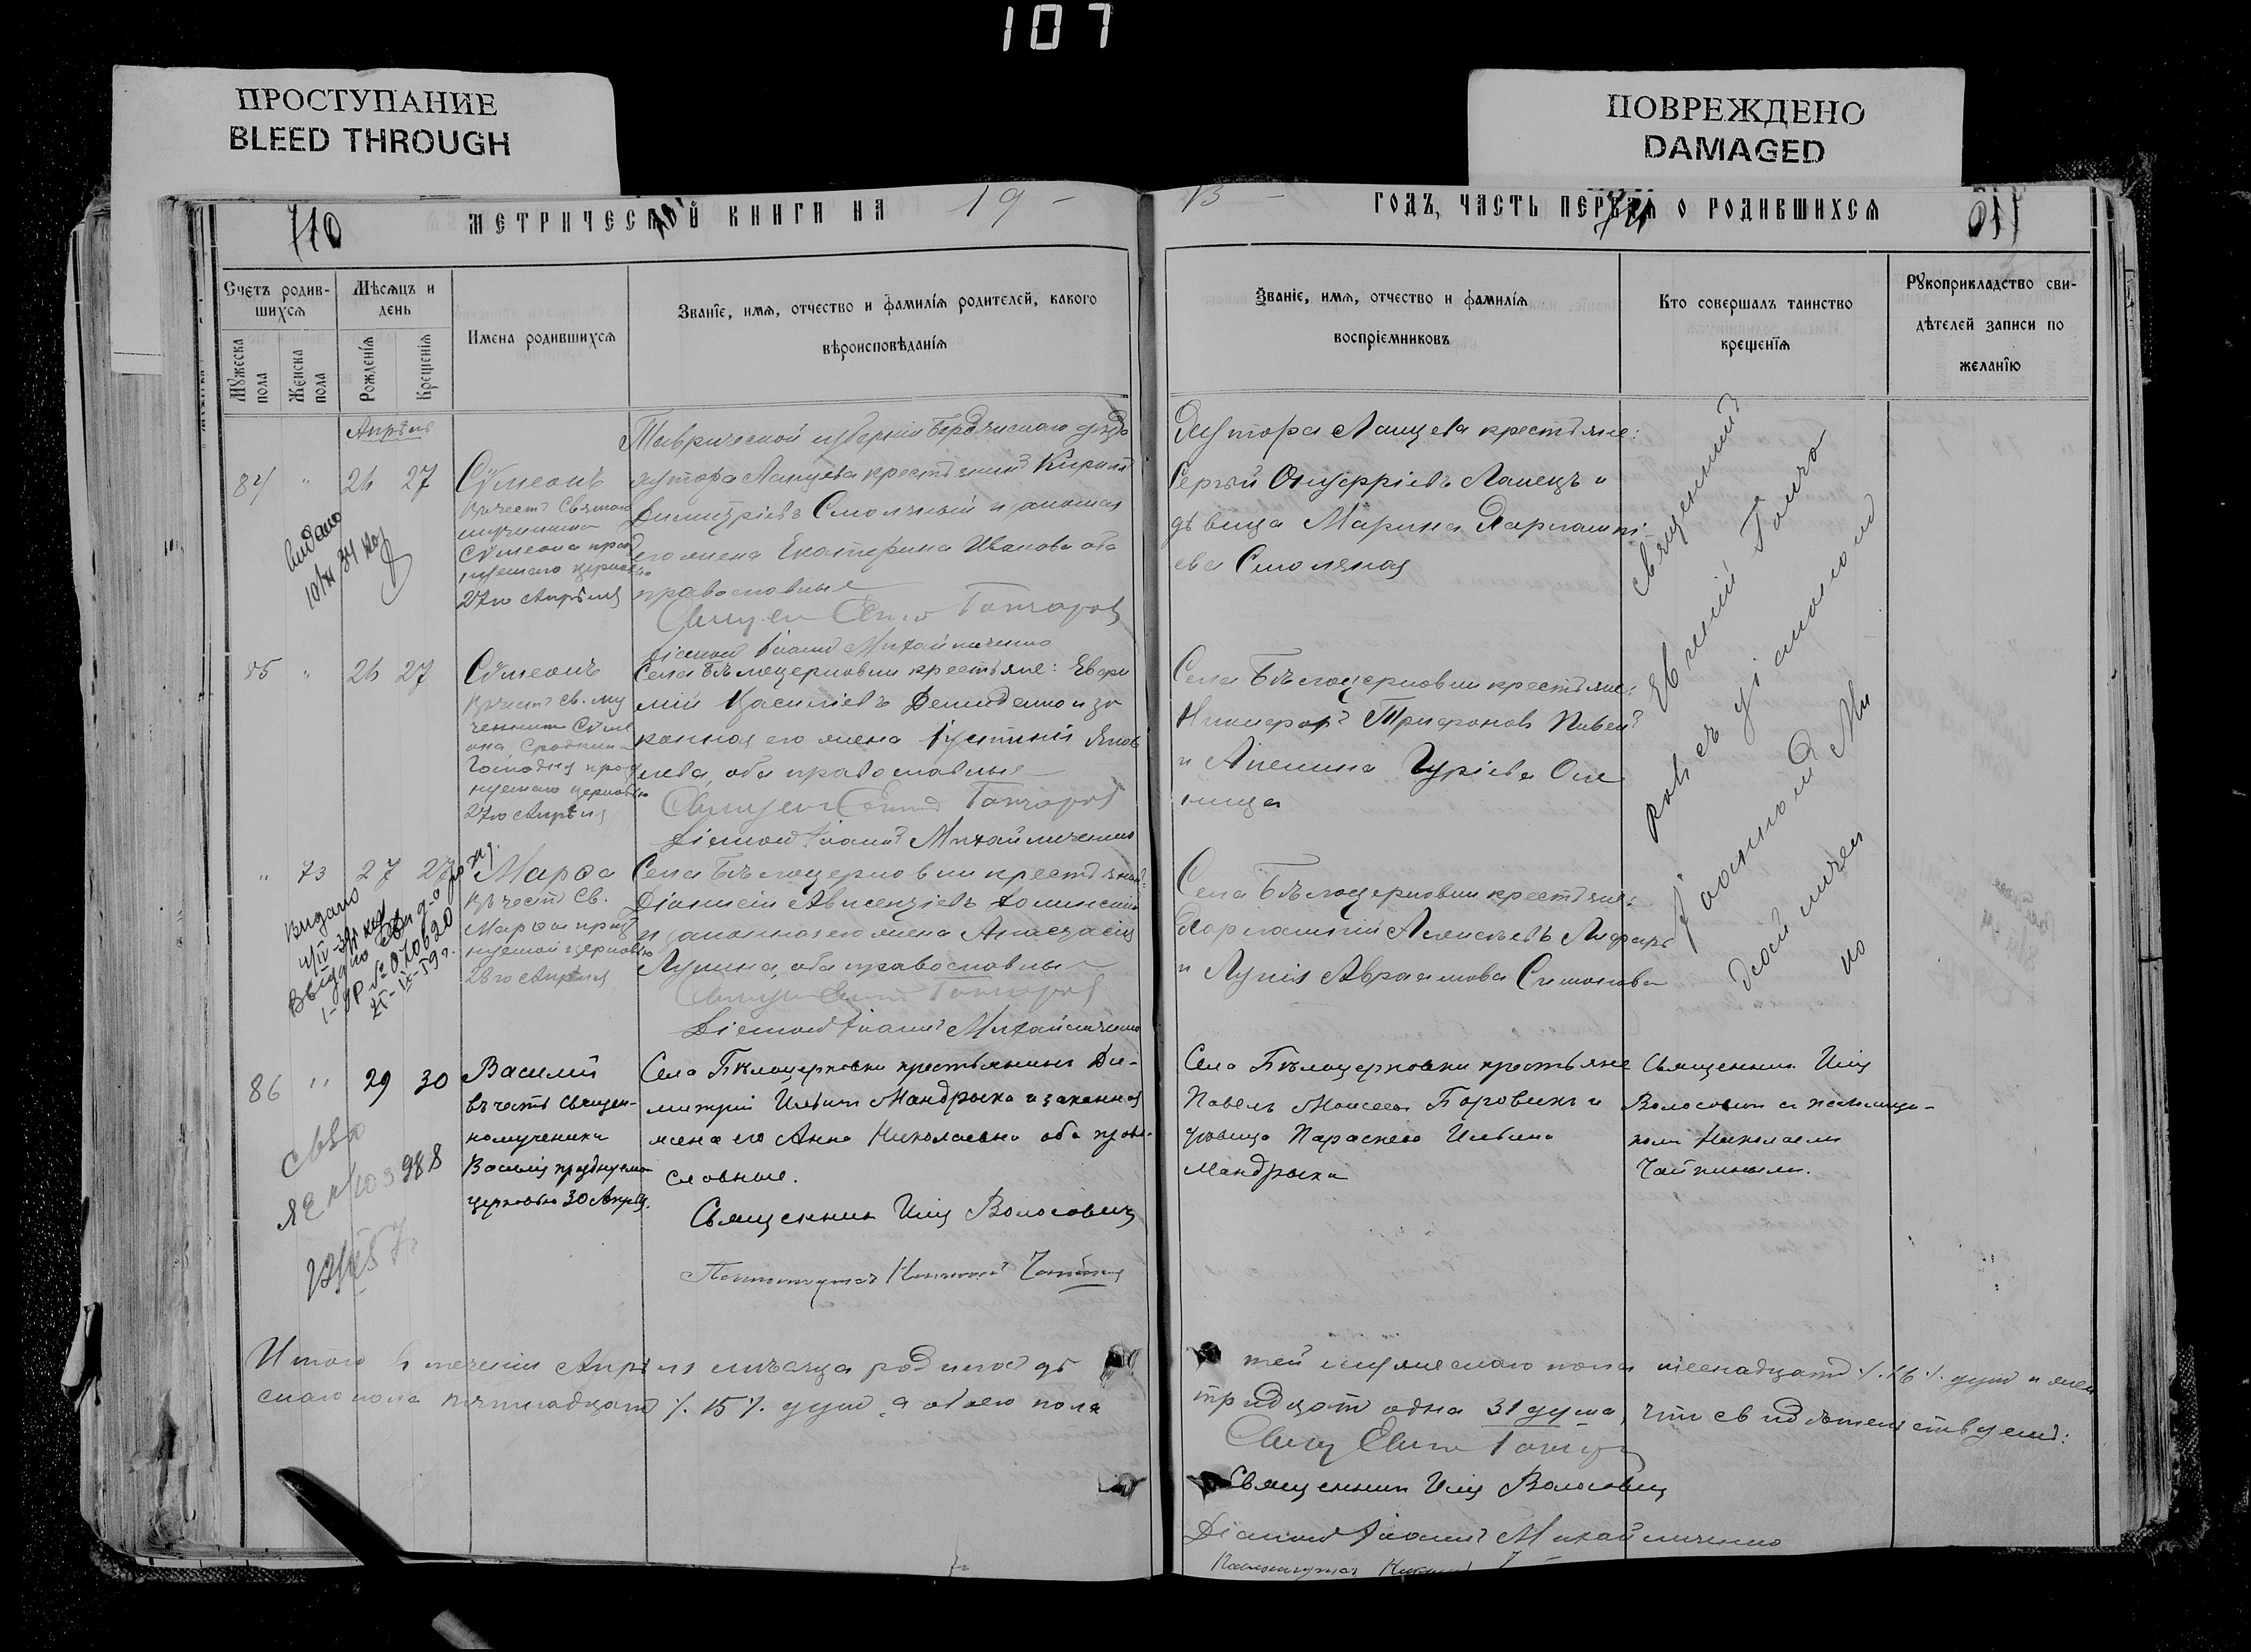 107
ПРОСТУПАНИЕ
BLEED THROUGH
ПОВРЕЖДЕНО
DAMAGED
710
МЕТРИЧЕСКОЙ КНИГИ НА 19 -
13 - ГОДЪ, ЧАСТЬ ПЕРВАЯ О РОДИВШИХСЯ
Счетъ родившихся
Мужеска пола
Женска пола
Мѣсяцъ и день
Рожденія
Крещенія
Имена родившихся
Званіе, имя, отчество и фамилія родителей, какого
вѣроисповѣданія
Званіе, имя, отчество и фамилія
воспріемниковъ
Кто совершалъ таинство
крещенія
Рукоприкладство сви-
дѣтелей записи по
желанію
Апрѣль
84 " 26 27
Сѵмеонъ
Въ честь Святаго
мученика
Сѵмеона празд
нуемаго церковью
27го Апрѣля
Таврической губерніи Бердянскаго уѣзда
хутора Ланцева крестьянинъ Кирилъ
Димитріевъ Смоляный и законная
его жена Екатерина Иванова оба
православные
Священ Евгеній Гончаровъ
Діаконъ Іоаннъ Михайличенко
Хутора Ланцева крестьяне:
Сергѣй Онуфріевъ Ланецъ и
дѣвица Марина Харлампі
ева Смоляная
Священникъ
Евгеній Гонча
ровъ съ діакономъ
Іоанномъ Ми
хайличен
ко
видано
85 " 26 27
Сѵмеонъ
Въ честь св. му
ченника Сѵме
она, Сродника
Господня празд
нуемаго церковью
27го Апрѣля
Села Бѣлоцерковки крестьяне: Евфи
мій Василіевъ Демиденко и за
конная его жена Іустинія Яков
лева, оба православные
Священ Евгеній Гончаровъ
Діаконъ Іоаннъ Михайличенко
Села Бѣлоцерковки крестьяне:
Никифоръ Трифоновъ Пивень
и Акелина Гуріева Оле
ница
" 73 27 27
Марѳа
Въ честь Св.
Марѳы празд
нуемой церковью
28го Апрѣля
Села Бѣлоцерковки крестьяне:
Діонисій Авксентіевъ
и законная его жена Анастасія
Лукина, оба православные
Священ Евгеній Гончаровъ
Діаконъ Іоаннъ Михайличенко
Села Бѣлоцерковки крестьяне:
Харлампій Алексѣевъ Лифарь
и Лукія Авраамова Симонова
видано
Выдано
№ 070620
86 " 29 30
Василій
въ честь Священ-
номученика
Василія празднуемаго
церковью 30 Апрѣля.
Села Бѣлоцерковки крестьянинъ Ди-
митрій Ильичъ Мандрыка и законная
жена его Анна Николаевна оба право-
славные.
Священникъ Илія Волосовичъ
Псаломщикъ Николай Чайкинъ
Села Бѣлоцерковки крестьяне
Павелъ Моисеевъ Боровикъ и
дѣвица Параскева Ильина
Мандрыка
Священникъ Илія
Волосовичъ съ псаломщи-
комъ Николаемъ
Чайкинымъ.
Итого въ теченіи Апрѣля мѣсяца родилось дѣ
тей мужескаго пола шеснадцать ./. 16 ./. душ и жен
скаго пола пятнадцать ./. 15 ./. душ, а обоего пола
тридцать одна 31 душа, что свидѣтельствуемъ:
Священ Евгеній Гончар
Священникъ Илія Волосовичъ
Діаконъ Іоаннъ Михайличенко
Псаломщикъ